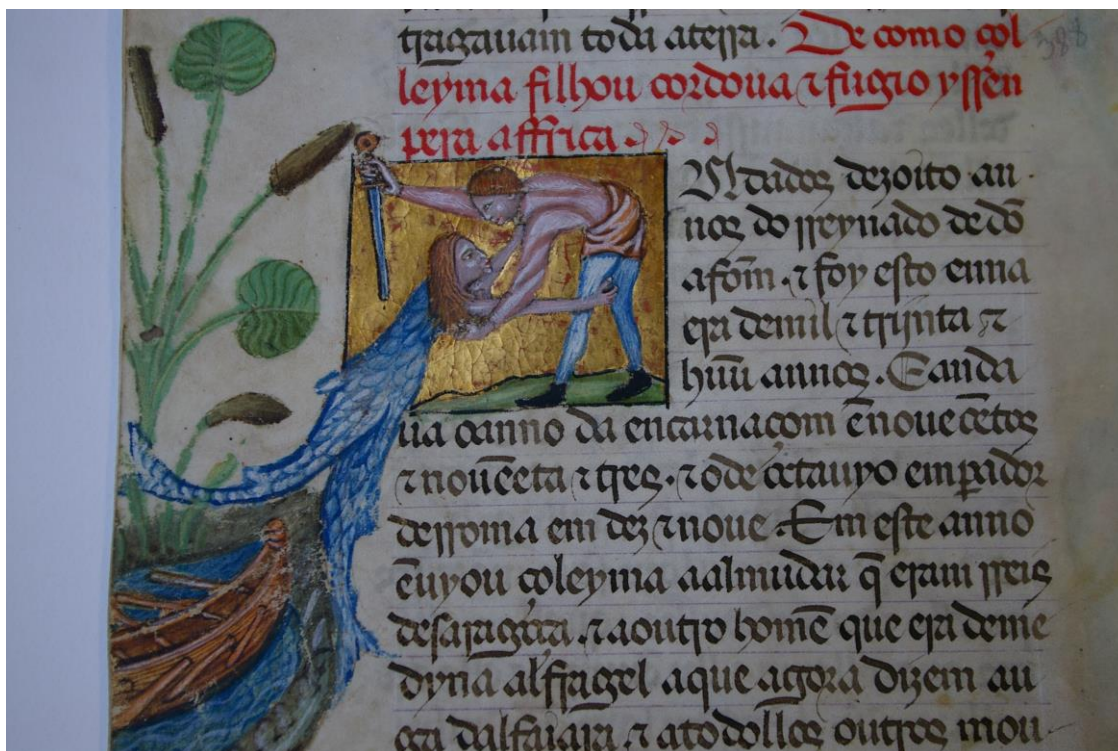 tragauam toda aterra. De como çol
leyma filhou cordoua ⁊ fugio yssen
pera affrica
Aldados dezoito an
nos do rreynado dedõ
afom. ⁊ foy esto enna
era demil ⁊ trijnta ⁊
huũ annos. E anda
ua oanno da encarnaçom ẽnouecẽtos
⁊ nouẽeta ⁊ tres. ⁊ ode octauyo emp̃ador
derroma em dez ⁊ noue. Em este anno
ẽuyou çoleyma aalmudar q̃ eram rreis
desaragoça. ⁊ aoutro homẽ que era deme
dyna alfragel aque agora dizem au
dalfaiara ⁊ atodollos outros mou